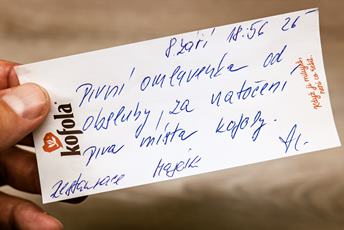 8 září 18:56 26
Pivní omluvenka od
obsluhy, za natočení
piva místo kofoly.
restaurace Maják
kofola
Když ji miluješ,
není co řešit.